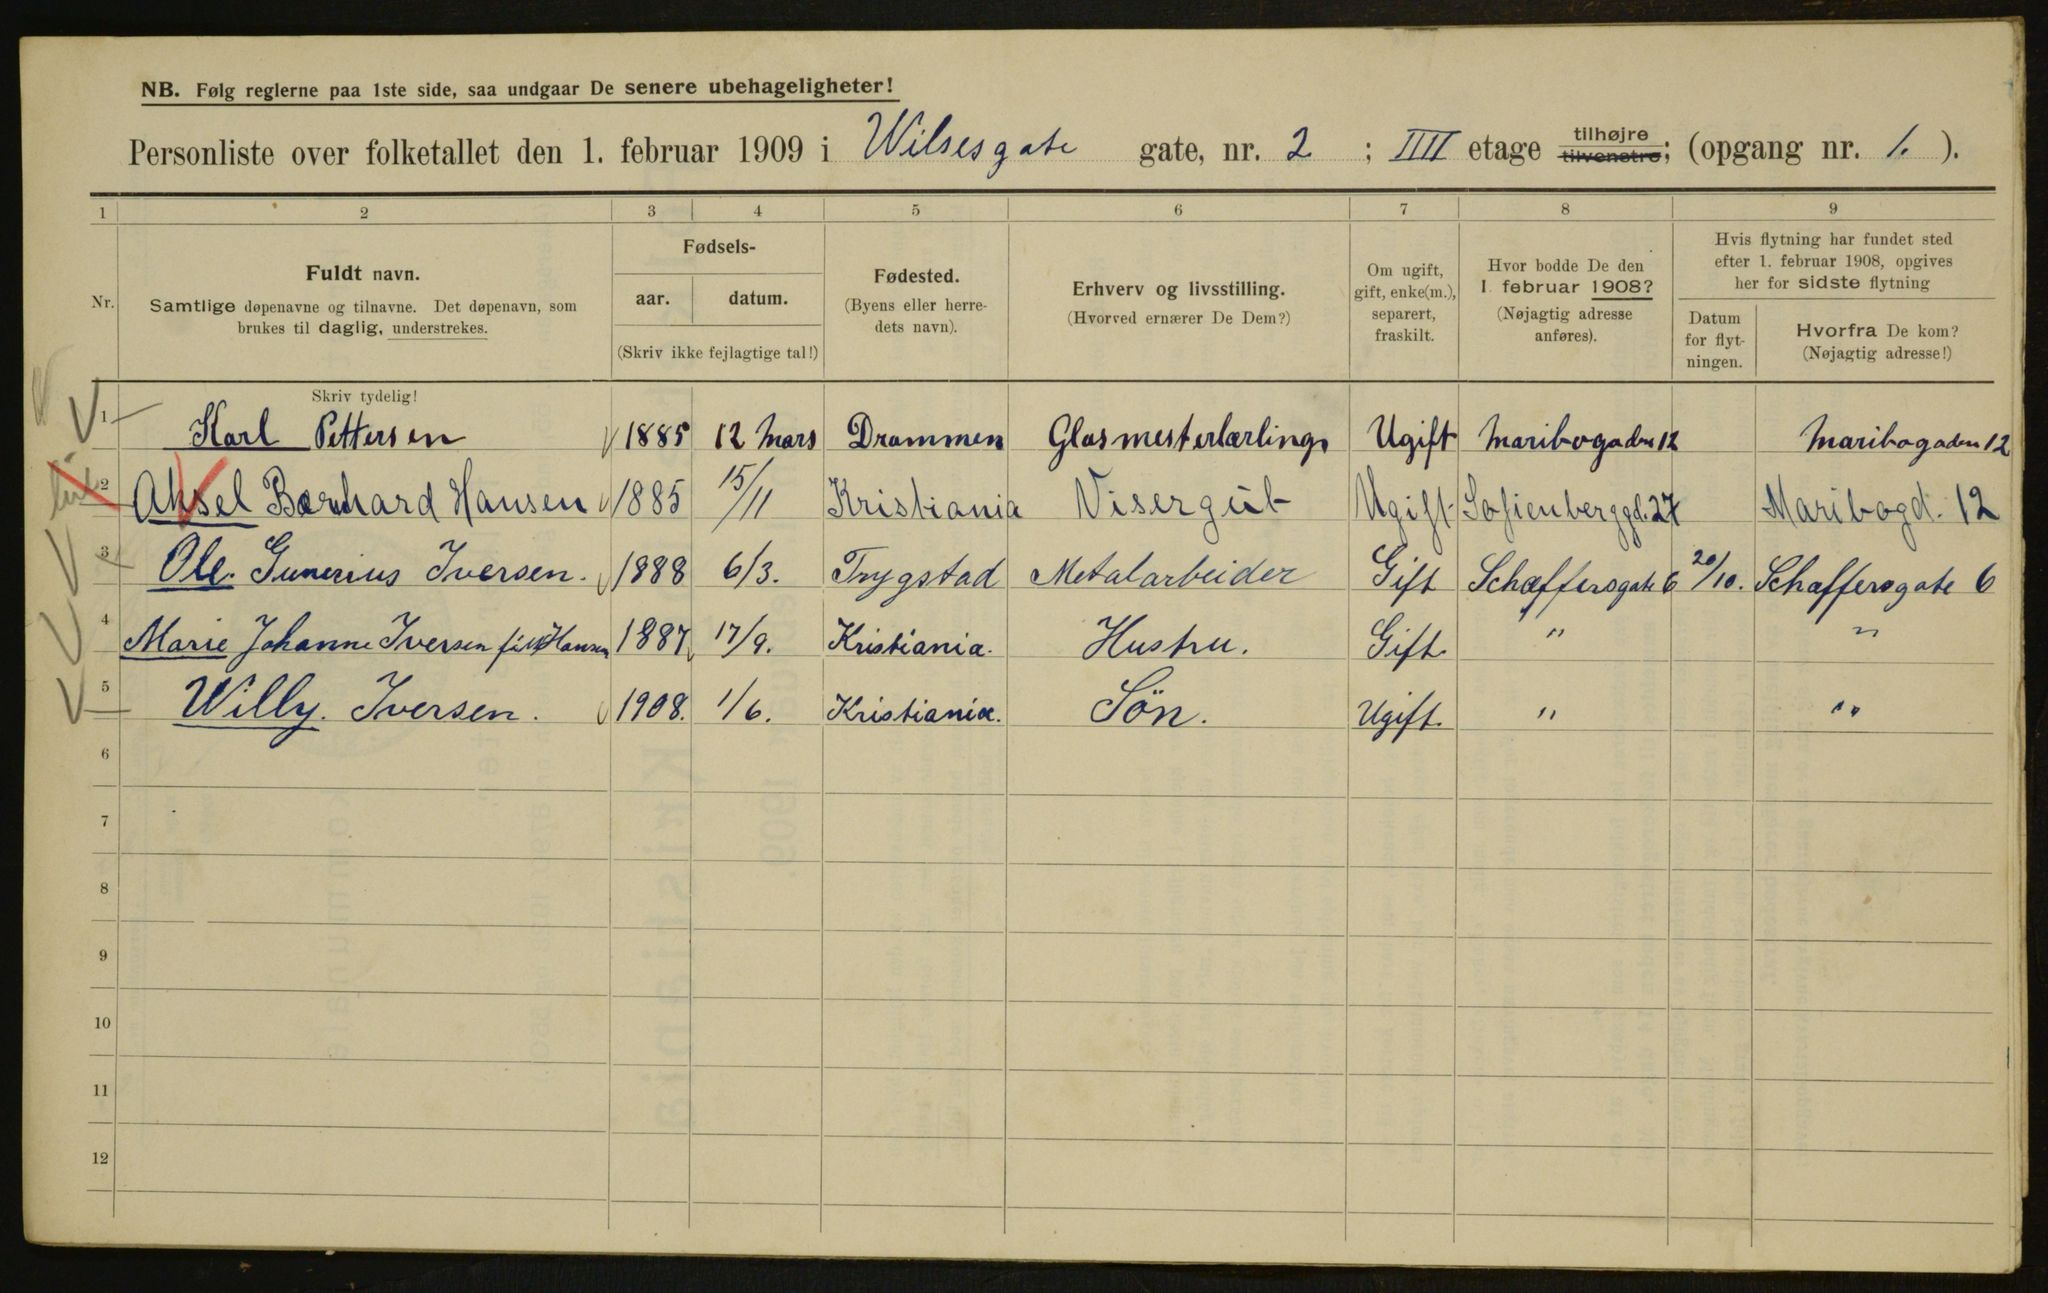 NB. Følg reglerne paa 1ste side, saa undgaar De senere ubehageligheter!
Personliste over folketallet den 1. februar 1909 i Wilsesgate gate, nr. 2 ; IIII etage tilhøjre tilvenstre; (opgang nr. 1. ).
1 2 3 4 5 6 7 8 9
Nr.
Fuldt navn.
Samtlige døpenavne og tilnavne. Det døpenavn, som
brukes til daglig, understrekes.
Fødsels-
aar. datum.
(Skriv ikke fejlagtige tal!)
Fødested.
(Byens eller herre-
dets navn).
Erhverv og livsstilling.
(Hvorved ernærer De Dem?)
Om ugift,
gift, enke(m.),
separert,
fraskilt.
Hvor bodde De den
1. februar 1908?
(Nøjagtig adresse
anføres).
Hvis flytning har fundet sted
efter 1. februar 1908, opgives
her for sidste flytning
Datum
for flyt-
ningen.
Hvorfra De kom?
(Nøjagtig adresse!)
Skriv tydelig!
1 Karl Pettersen 1885 12 Mars Drammen Glasmesterlærling Ugift Maribogaden 12 Maribogaden 12
2 Aksel Bernhard Hansen 1885 15/11 Kristiania Visergut Ugift Sofienberggd. 27 Maribogd. 12
3 Ole. Gunerius Iversen. 1888 6/3. Trygstad Metalarbeider Gift Schæffersgate 6 20/10. Schæffersgate 6
4 Marie Johanne Iversen født Hansen 1887 17/9. Kristiania. Hustru. Gift. " "
5 Willy. Iversen. 1908. 1/6. Kristiania. Søn. Ugift. " "
6
7
8
9
10
11
12